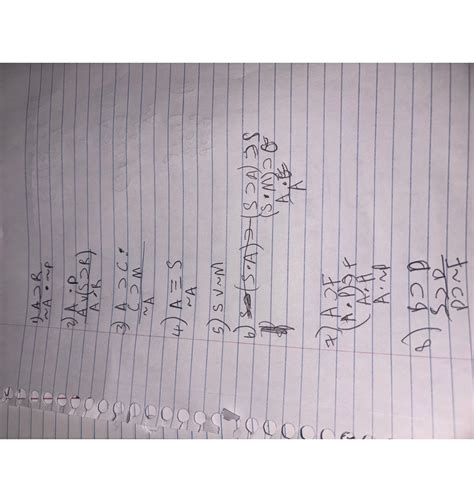 1) A ⊃ R
~A · ~P
2) A · P
A ∨ (S ⊃ R)
A ⊃ R
3) A ⊃ C ·
C ⊃ M
~A
4) A ≡ S
~A
5) S ∨ ~M
6) (S · A) ⊃ (S ⊃ A) ⊃ S
(S · M) ⊃
A ·
A
7) A ⊃ F
(A · P) ⊃ F
A · A
A · ~P
8) B ⊃ D
S ⊃ D
D ⊃ ~F